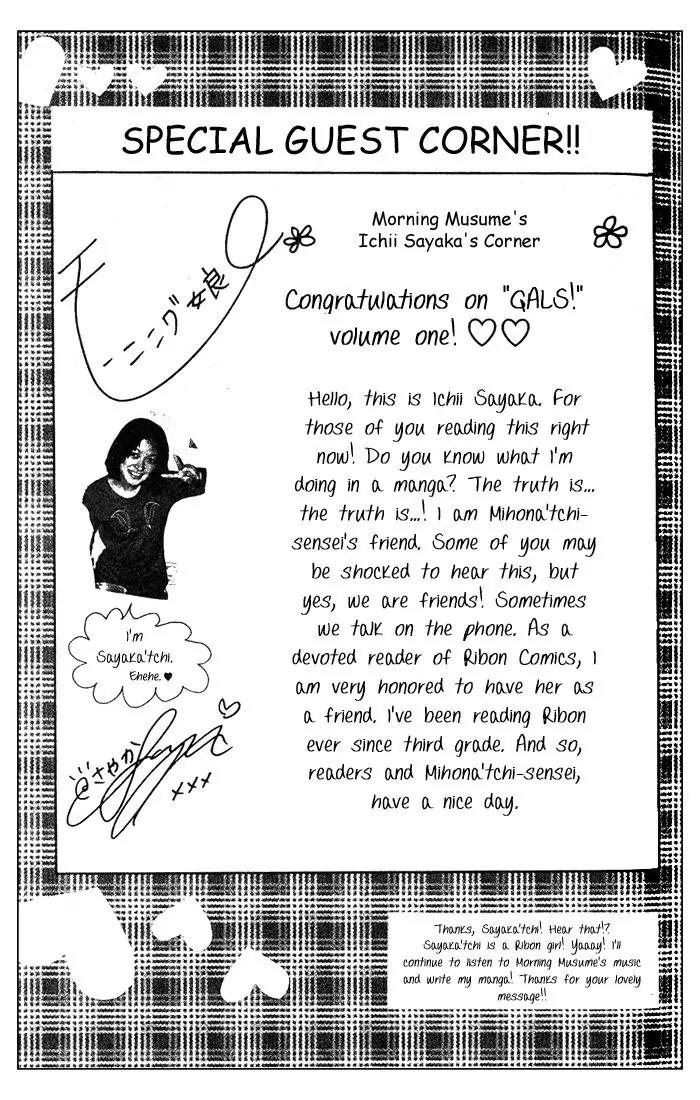 SPECIAL GUEST CORNER!!
Morning Musume's
Ichii Sayaka's Corner
モーニング娘
Congratulations on "GALS!"
volume one! ♡♡
Hello, this is Ichii Sayaka. For
those of you reading this right
now! Do you know what I'm
doing in a manga? The truth is...
the truth is...! I am Mihona'tchi-
sensei's friend. Some of you may
be shocked to hear this, but
yes, we are friends! Sometimes
we talk on the phone. As a
devoted reader of Ribon Comics, I
am very honored to have her as
a friend. I've been reading Ribon
ever since third grade. And so,
readers and Mihona'tchi-sensei,
have a nice day.
I'm
Sayaka'tchi.
Ehehe. ♥
@さやか
xxx
Thanks, Sayaka'tchi! Hear that!?
Sayaka'tchi is a Ribon girl! Yaaay! I'll
continue to listen to Morning Musume's music
and write my manga! Thanks for your lovely
message!!